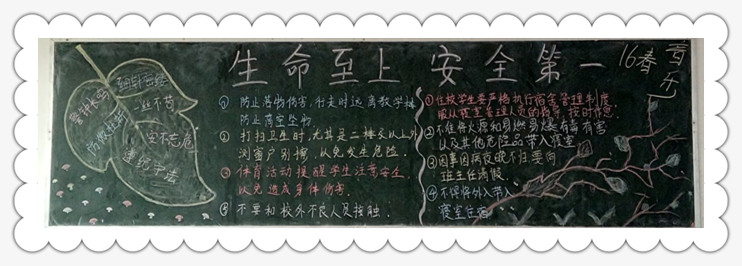 生命至上 安全第一
16春
警钟长鸣
防微杜渐
一丝不苟
安不忘危
遵纪守法
① 防止落物伤害,行走时远离教学楼
防止高空坠物
② 打扫卫生时,尤其是二楼及以上外
测窗户别擦,以免发生危险.
③ 体育活动提醒学生注意安全,
以免造成身体伤害.
④ 不要和校外不良人员接触.
① 住校学生要严格执行宿舍管理制度.
服从寝室管理人员的指导,按时作息.
② 不准将火源和易燃易爆有毒有害
以及其他危险品带入寝室
③ 因事因病夜晚不归要向
班主任请假.
④ 不得将外人带入
寝室住宿